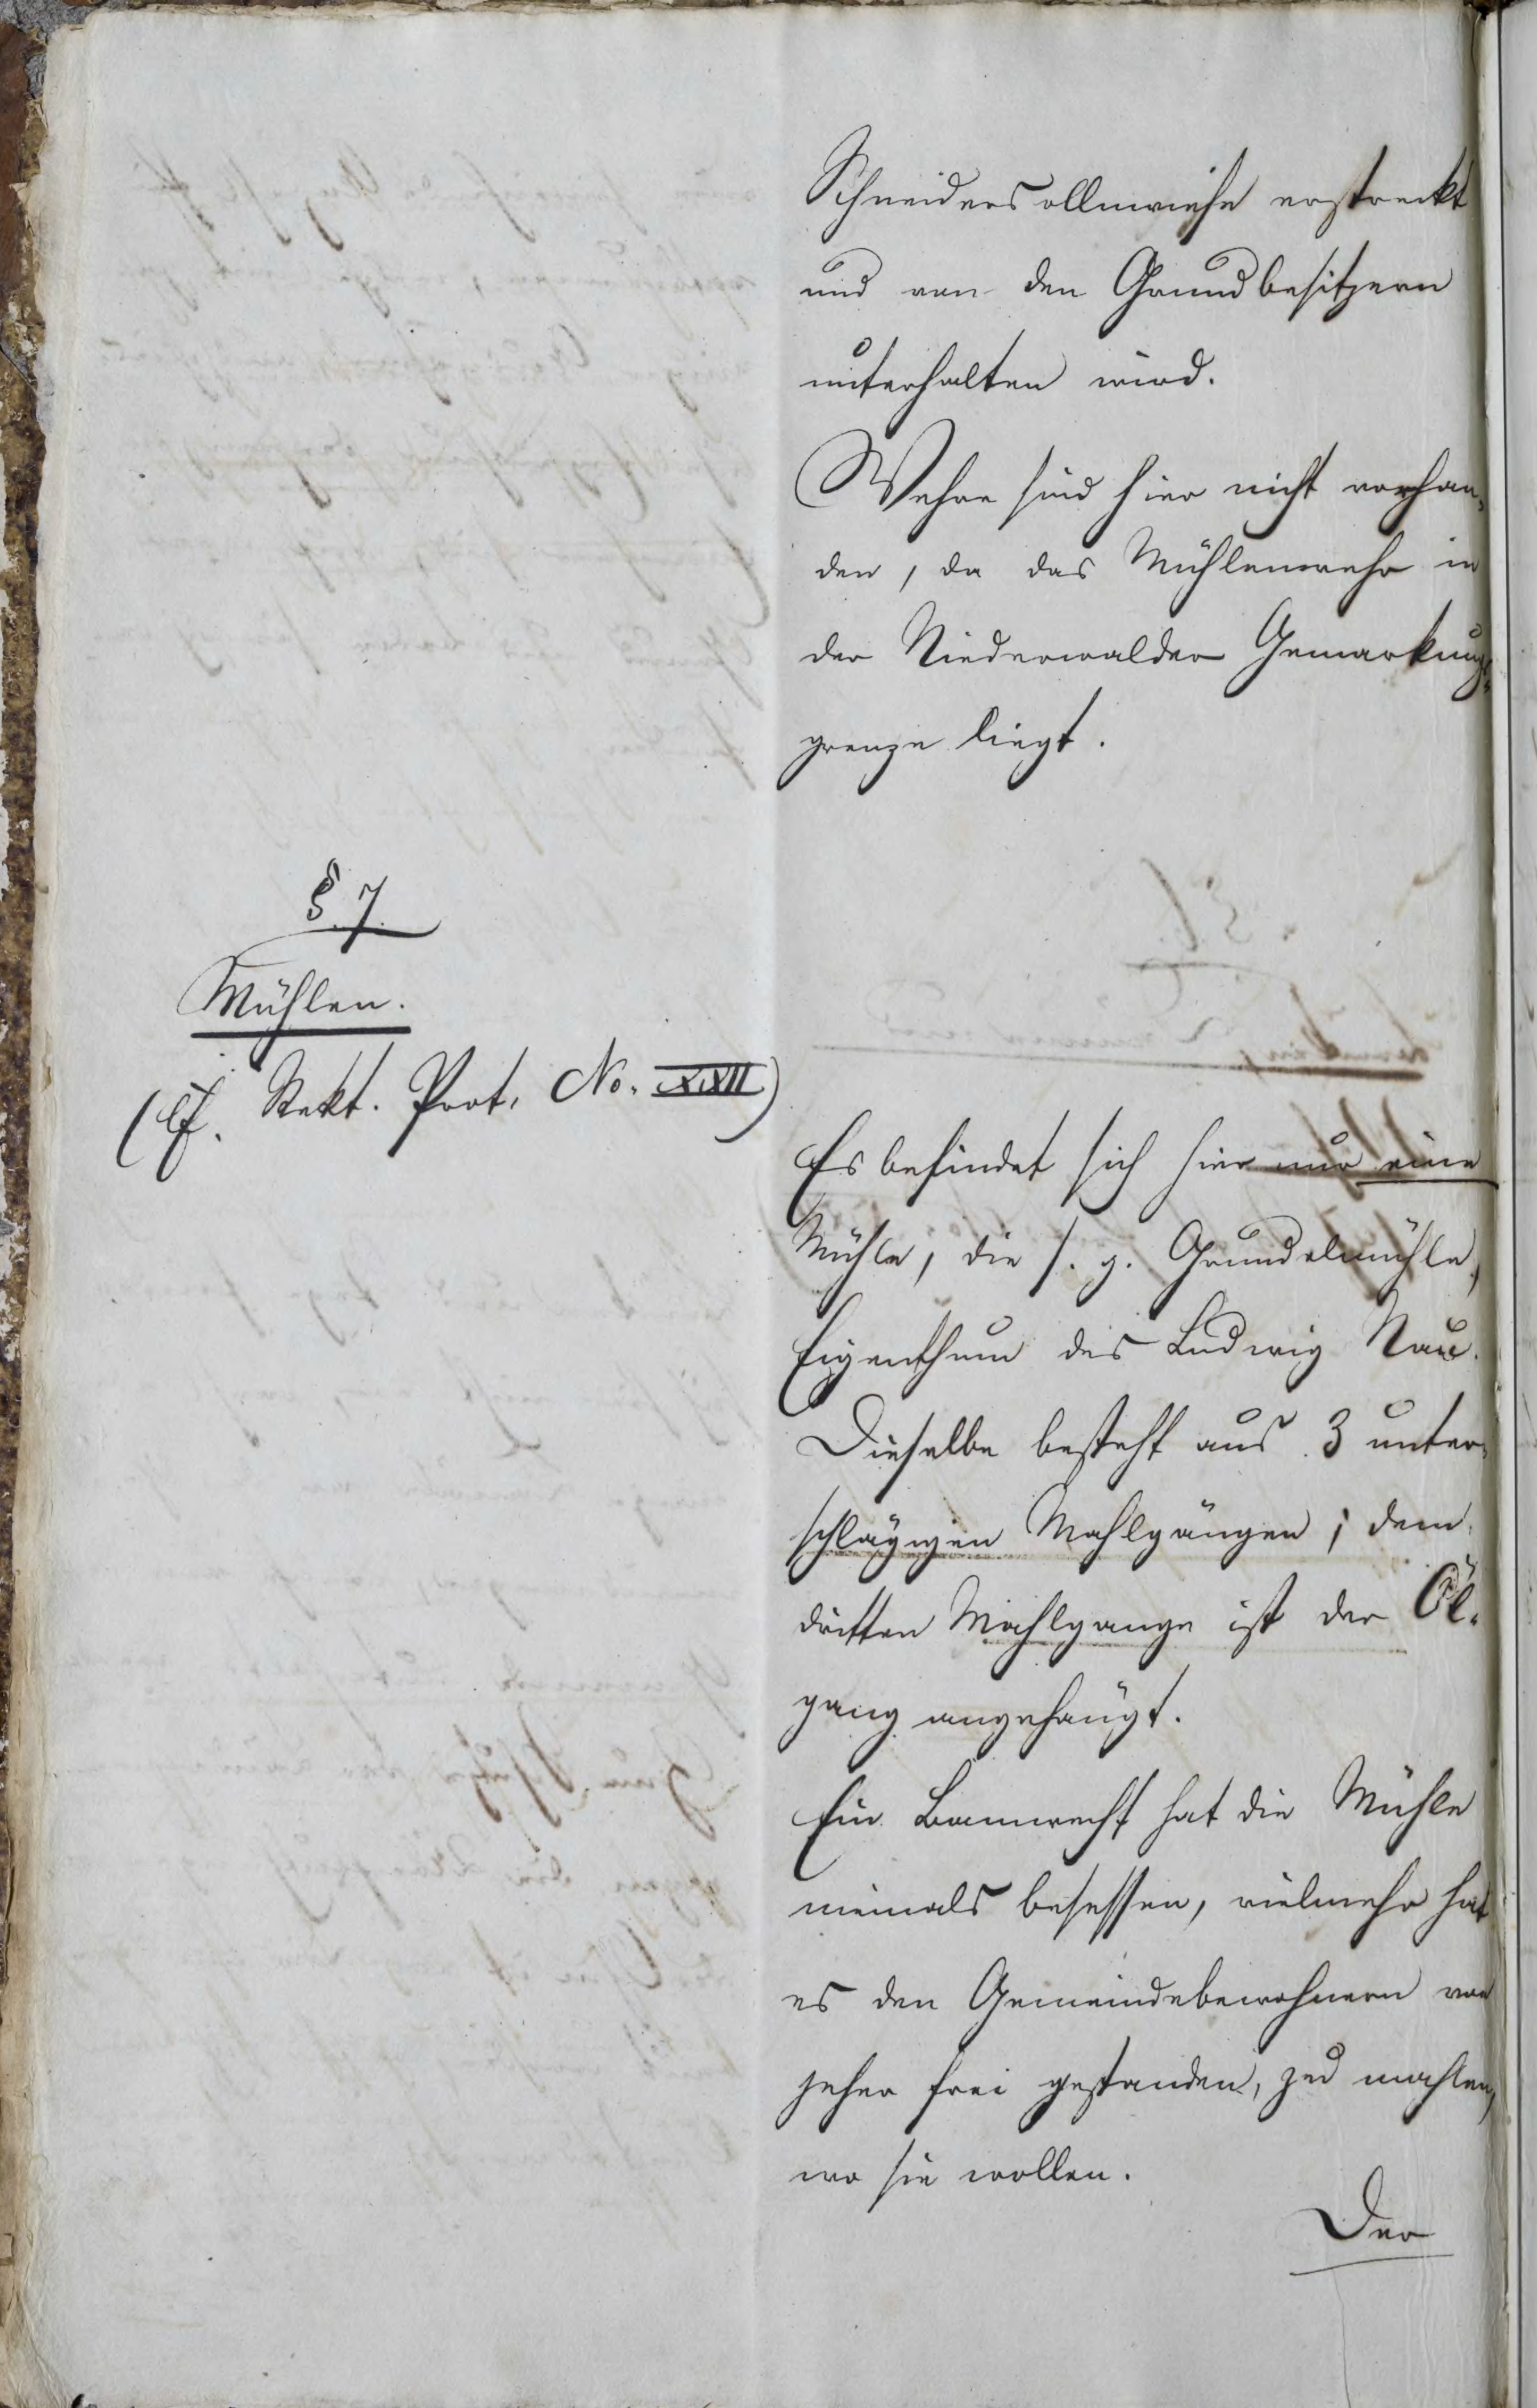 Schneidersollwiese erstreckt
und von den Grundbesitzern
unterhalten wird.
Wehre sind hier nicht vorhan-
den, da das Mühlenwehr in
der Niederwalder Gemarkungs-
grenze liegt.
§. 7.
Mühlen.
(cf. Rekt. Prot. No. XXII)
Es befindet sich hier nur eine
Mühle, die s. g. Grundelmühle,
Eigenthum des Ludwig Nau.
Dieselbe besteht aus 3 unter-
schlägigen Mahlgängen; dem
dritten Mahlgange ist der Öl-
gang angehängt.
Ein Bannrecht hat die Mühle
niemals besessen, vielmehr hat
es den Gemeindebewohnern von
jeher frei gestanden, zu mahlen,
wo sie wollen.
Der